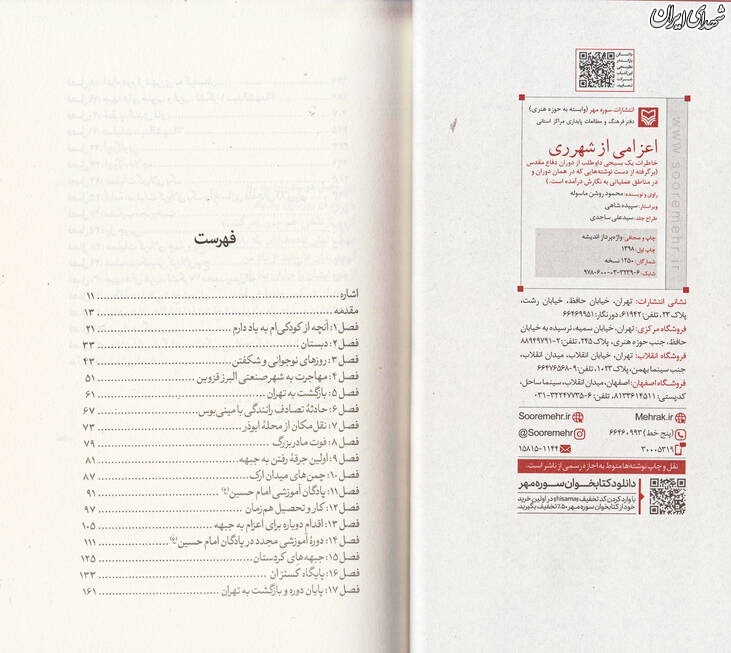 شهدای ایران
انتشارات سوره مهر (وابسته به حوزه هنری)
دفتر فرهنگ و مطالعات پایداری مراکز استانی
اعزامی از شهرری
خاطرات یک بسیجی داوطلب از دوران دفاع مقدس
(برگرفته از دست نوشته‌هایی که در همان دوران و
در مناطق عملیاتی به نگارش درآمده است.)
راوی و نویسنده: محمود روشن ماسوله
ویراستار: سپیده شاهی
طراح جلد: سیدعلی ساجدی
چاپ و صحافی: واژه‌پرداز اندیشه
چاپ اول: ۱۳۹۸
شمارگان: ۱۲۵۰ نسخه
شابک: ۶-۳۲۳۹-۰۳-۶۰۰-۹۷۸
www.sooremehr.ir
نشانی انتشارات: تهران، خیابان حافظ، خیابان رشت،
پلاک ۲۳، تلفن: ۶۱۹۴۲، دورنگار: ۶۶۴۶۹۹۵۱
فروشگاه مرکزی: تهران، خیابان سمیه، نرسیده به خیابان
حافظ، جنب حوزه هنری، پلاک ۲۴۵، تلفن: ۲-۸۸۹۴۹۷۹۱
فروشگاه انقلاب: تهران، خیابان انقلاب، میدان انقلاب،
جنب سینما بهمن، پلاک ۱۰۲۳، تلفن: ۹-۶۶۴۷۶۵۶۸
فروشگاه اصفهان: اصفهان، میدان انقلاب، سینما ساحل،
کدپستی: ۸۱۳۳۶۱۴۵۱۱، تلفن: ۶-۳۲۲۴۷۷۳۵-۰۳۱
Mehrak.ir Sooremehr.ir
(پنج خط) ۶۶۴۶۰۹۹۳ @Sooremehr
۳۰۰۰۵۳۱۹ ۱۵۸۱۵-۱۱۴۴
نقل و چاپ نوشته‌ها منوط به اجازه رسمی از ناشر است.
دانلود کتابخوان سوره مهر
با وارد کردن کد تخفیف (hisama) در اولین خرید
خود از کتابخوان سوره مهر ۵۰٪ تخفیف بگیرید.
فهرست
اشاره ۱۱
مقدمه ۱۳
فصل ۱: آنچه از کودکی‌ام به یاد دارم ۲۱
فصل ۲: دبستان ۳۳
فصل ۳: روزهای نوجوانی و شکفتن ۴۳
فصل ۴: مهاجرت به شهر صنعتی البرز قزوین ۵۱
فصل ۵: بازگشت به تهران ۶۱
فصل ۶: حادثهٔ تصادف رانندگی با مینی‌بوس ۶۷
فصل ۷: نقل مکان از محلهٔ ابوذر ۷۳
فصل ۸: فوت مادربزرگ ۷۹
فصل ۹: اولین جرقهٔ رفتن به جبهه ۸۱
فصل ۱۰: چمن‌های میدان ارک ۸۷
فصل ۱۱: پادگان آموزشی امام حسین(ع) ۹۱
فصل ۱۲: کار و تحصیل هم‌زمان ۹۷
فصل ۱۳: اقدام دوباره برای اعزام به جبهه ۱۰۵
فصل ۱۴: دورهٔ آموزشی مجدد در پادگان امام حسین(ع) ۱۱۱
فصل ۱۵: جبهه‌های کردستان ۱۲۵
فصل ۱۶: پایگاه کسنزان ۱۳۳
فصل ۱۷: پایان دوره و بازگشت به تهران ۱۶۱